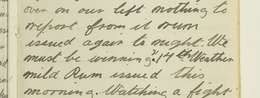 over on our left nothing to
report from it rum
issued again to night. We
must be winning." 14th Weather
mild Rum issued this
morning. Watching a fight